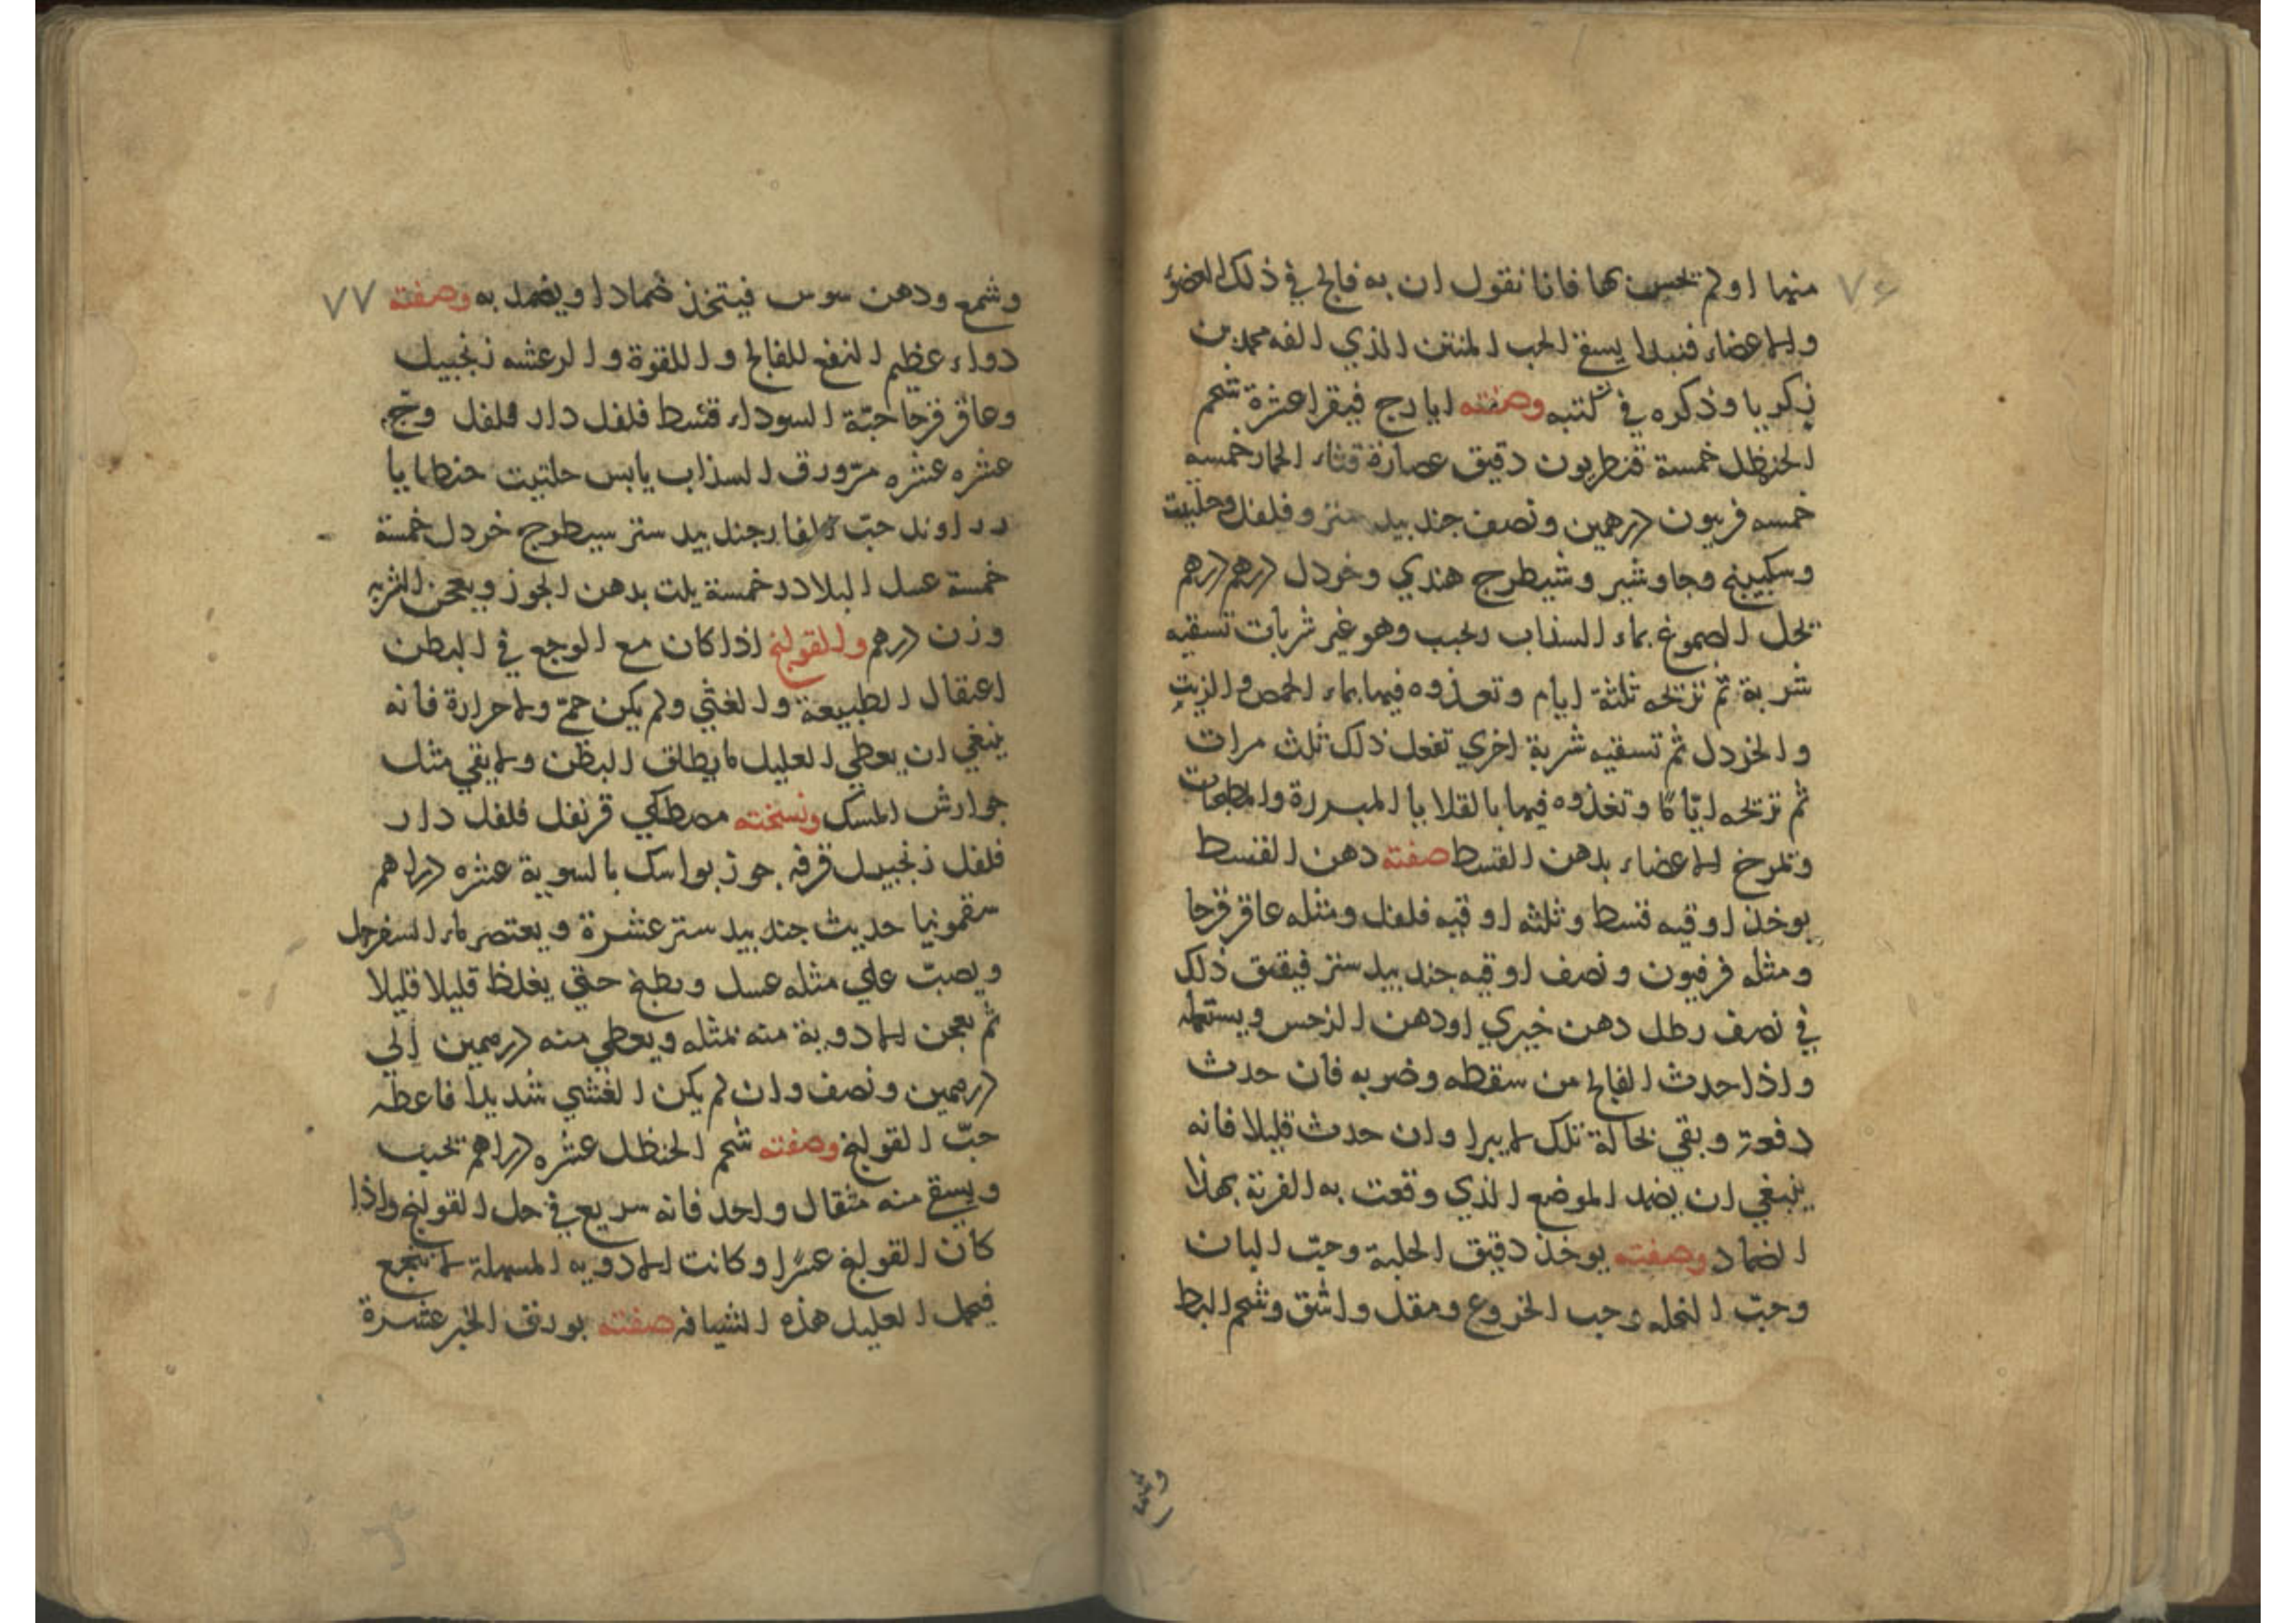 ٧٦
منها او لم تحس بها فانا نقول ان به فالج في ذلك العضو
والاعضاء فنبدا يسقي الحب المنتن الذي الفه محمد بن
زكريا وذكره في كتبه وصفته ايارج فيقرا عشرة شحم
الحنظل خمسة قنطريون دقيق عصارة قثاء الحمار خمسه
خمسه فربيون درهمين ونصف جند بيد ستر وفلفل وحلتيت
وسكبينج وجاوشير وشيطرج هندي وخردل درهم درهم
تحل الصموغ بماء السذاب وتحبب وهو غير شربات تسقيه
شربة ثم تريحه ثلثة ايام وتعذوه فيها بماء الحمص والزيت
والخردل ثم تسقيه شربة اخري تفعل ذلك ثلث مرات
ثم تريحه ايّاما وتغذوه فيها بالقلايا المبزرة والمطجنات
وتمرخ الاعضاء بدهن القسط صفته دهن القسط
يوخذ اوقيه قسط وثلثه اوقيه فلفل ومثله عاقر قرحا
ومثله فرفيون ونصف اوقيه جند بيد ستر فيفتق ذلك
في نصف رطل دهن خيري اودهن النرجس ويستعمله
واذا حدث الفالج من سقطه وضربه فان حدث
دفعة وبقي بحالة تلك لا يبرا وان حدث قليلا فانه
ينبغي ان يضمد الموضع الذي وقعت به الضربة بهذا
الضماد وصفته يوخذ دقيق الحلبة وحبّ البان
وحبّ النخله وحب الخروع ومقل واشق وشحم البط
وشمع
٧٧
وشمع ودهن سوس فيتخذ ضمادا ويضمد به وصفته
دواء عظيم النفع للفالج واللقوة والرعشه زنجبيل
وعاقر قرحا حبّة السوداء قسط فلفل دار فلفل وجّ
عشره عشره مرّ ورق السذاب يابس حلتيت جنطايا
زراوند حبّ الغار جند بيد ستر سيطرج خردل خمسة
خمسة عسل البلادر خمسة يلت بدهن الجوز ويعجن الشربه
وزن درهم والقولنج اذا كان مع الوجع في البطن
اعتقال الطبيعة والغثي ولم يكن حمّي ولا حرارة فانه
ينبغي ان يعطي العليل ما يطلق البطن ولا يقي مثل
جوارش المسك ونسخته مصطكي قرنفل فلفل دار
فلفل زنجبيل قرفه جوز بوا سك بالسوية عشره دراهم
سقمونيا حديث جند بيد ستر عشرة ويعتصر ماء السفرجل
ويصبّ علي مثله عسل ويطبخ حتي يغلظ قليلا قليلا
ثم يعجن الادوية منه بمثله ويعطي منه درهمين إلي
درهمين ونصف وان لم يكن الغشي شديدا فاعطه
حبّ القولنج وصفته شحم الحنظل عشره دراهم تحبب
ويسقي منه مثقال واحد فانه سريع في حل القولنج واذا
كان القولنج عسرا وكانت الادويه المسهلة لا تنجع
فيحمل العليل هذه الشيافه صفته بورق الخبز عشرة